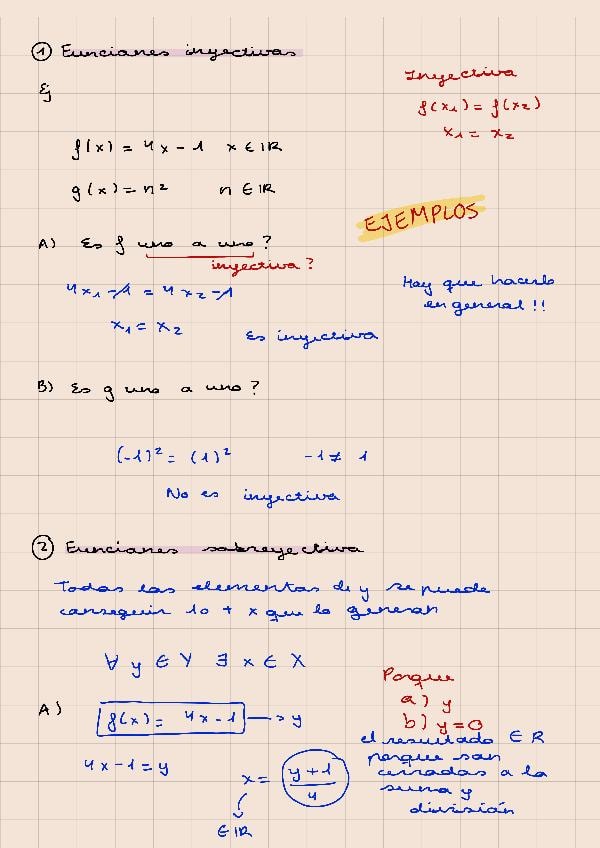 1 Funciones inyectivas
Ej
Inyectiva
f(x1) = f(x2)
x1 = x2
f(x) = 4x - 1 x ∈ IR
g(x) = n² n ∈ IR
EJEMPLOS
A) Es f uno a uno?
inyectiva?
4x1 - 1 = 4x2 - 1
x1 = x2
Es inyectiva
Hay que hacerlo
en general!!
B) Es g uno a uno?
(-1)² = (1)² -1 ≠ 1
No es inyectiva
2 Funciones sobreyectiva
Todos los elementos de y se puede
conseguir 1 o + x que lo generan
∀ y ∈ Y ∃ x ∈ X
A) f(x) = 4x - 1 → y
4x - 1 = y
x = (y + 1)/4
∈ IR
Porque
a) y
b) y = 0
el resultado ∈ R
porque son
cerradas a la
suma y
división